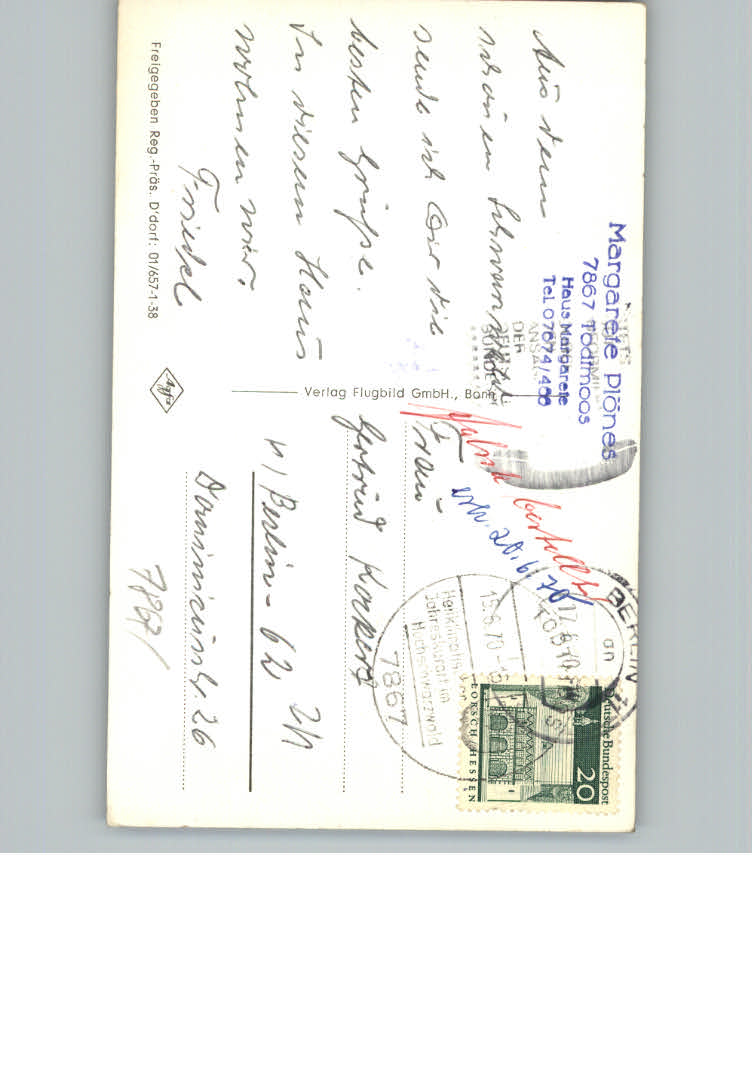 Margarete Plönes
7867 Todtmoos
Haus Margarete
Tel. 07674/466
Aus dem
schönen Schwarzwald
sende ich Dir die
besten Grüße.
In diesem Haus
wohnen wir.
Friedel
Freigegeben Reg.-Präs. D'dorf: 01/657-1-38
Agfa
Verlag Flugbild GmbH., Bonn
Deutsche Bundespost
20
LORSCH/HESSEN
BERLIN
an
17.6.70
7867
15.6.70
Heilklimatischer
Jahreskurort im
Hochschwarzwald
20.6.70
Frau
Gertrud
1/Berlin-62
Dominicusstr. 26
7867/